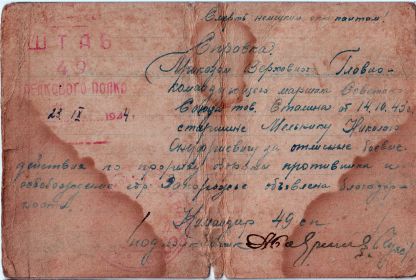 Смерть немецким оккупантам!
ШТАБ
49
СТРЕЛКОВОГО ПОЛКА
22 IX 1944
Справка.
Приказом Верховного Главно-
командующего маршала Советского
Союза тов. Сталина от 14.10.43г
старшине Мельнику Николаю
за отличные боевые
действия по прорыву обороны противника и
освобождение гор. Запорожье объявлена благодар-
ность
Командир 49 сп
подполковник